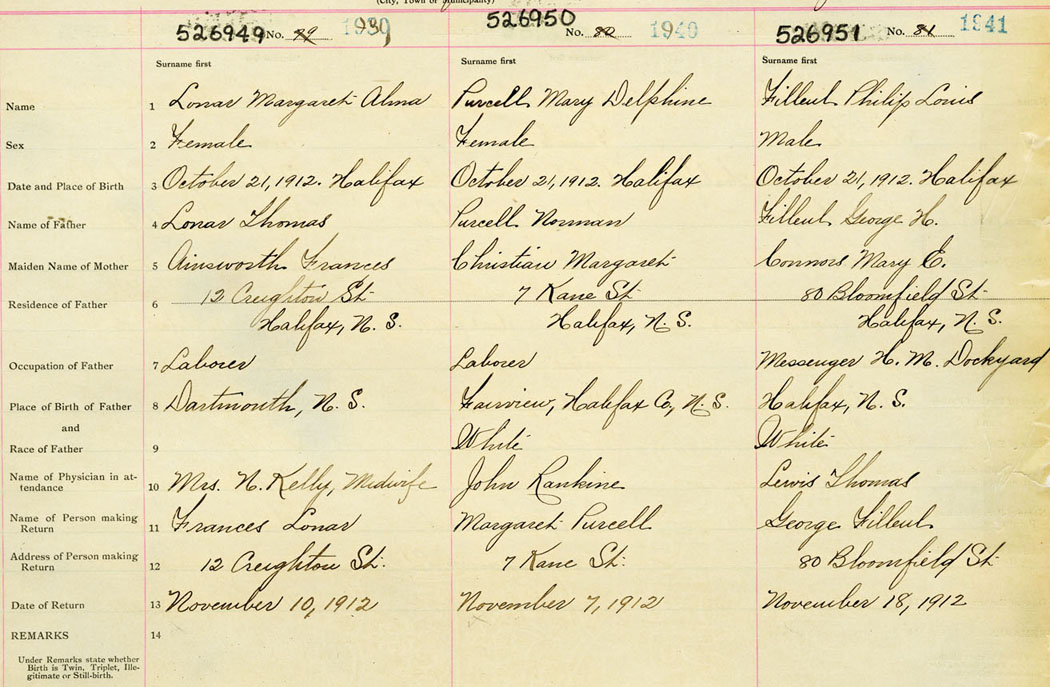 (City, Town or Municipality)
526949 No. 79 1939 526950 No. 80 1940 526951 No. 81 1941
Surname first Surname first Surname first
Name 1 Lonar Margaret Alma Purcell Mary Delphine Filleul Philip Louis
Sex 2 Female Female Male
Date and Place of Birth 3 October 21, 1912. Halifax October 21, 1912. Halifax October 21, 1912. Halifax
Name of Father 4 Lonar Thomas Purcell Norman Filleul George H.
Maiden Name of Mother 5 Ainsworth Frances Christian Margaret Connors Mary E.
Residence of Father 6 12 Creighton St 7 Kane St 80 Bloomfield St
Halifax, N. S. Halifax, N. S. Halifax, N. S.
Occupation of Father 7 Laborer Laborer Messenger H. M. Dockyard
Place of Birth of Father 8 Dartmouth, N. S. Fairview, Halifax Co, N. S. Halifax, N. S.
and
Race of Father 9 White White
Name of Physician in at-
tendance 10 Mrs. N. Kelly, Midwife John Rankine Lewis Thomas
Name of Person making
Return 11 Frances Lonar Margaret Purcell George Filleul
Address of Person making
Return 12 12 Creighton St. 7 Kane St. 80 Bloomfield St
Date of Return 13 November 10, 1912 November 7, 1912 November 18, 1912
REMARKS 14
Under Remarks state whether
Birth is Twin, Triplet, Ille-
gitimate or Still-birth.